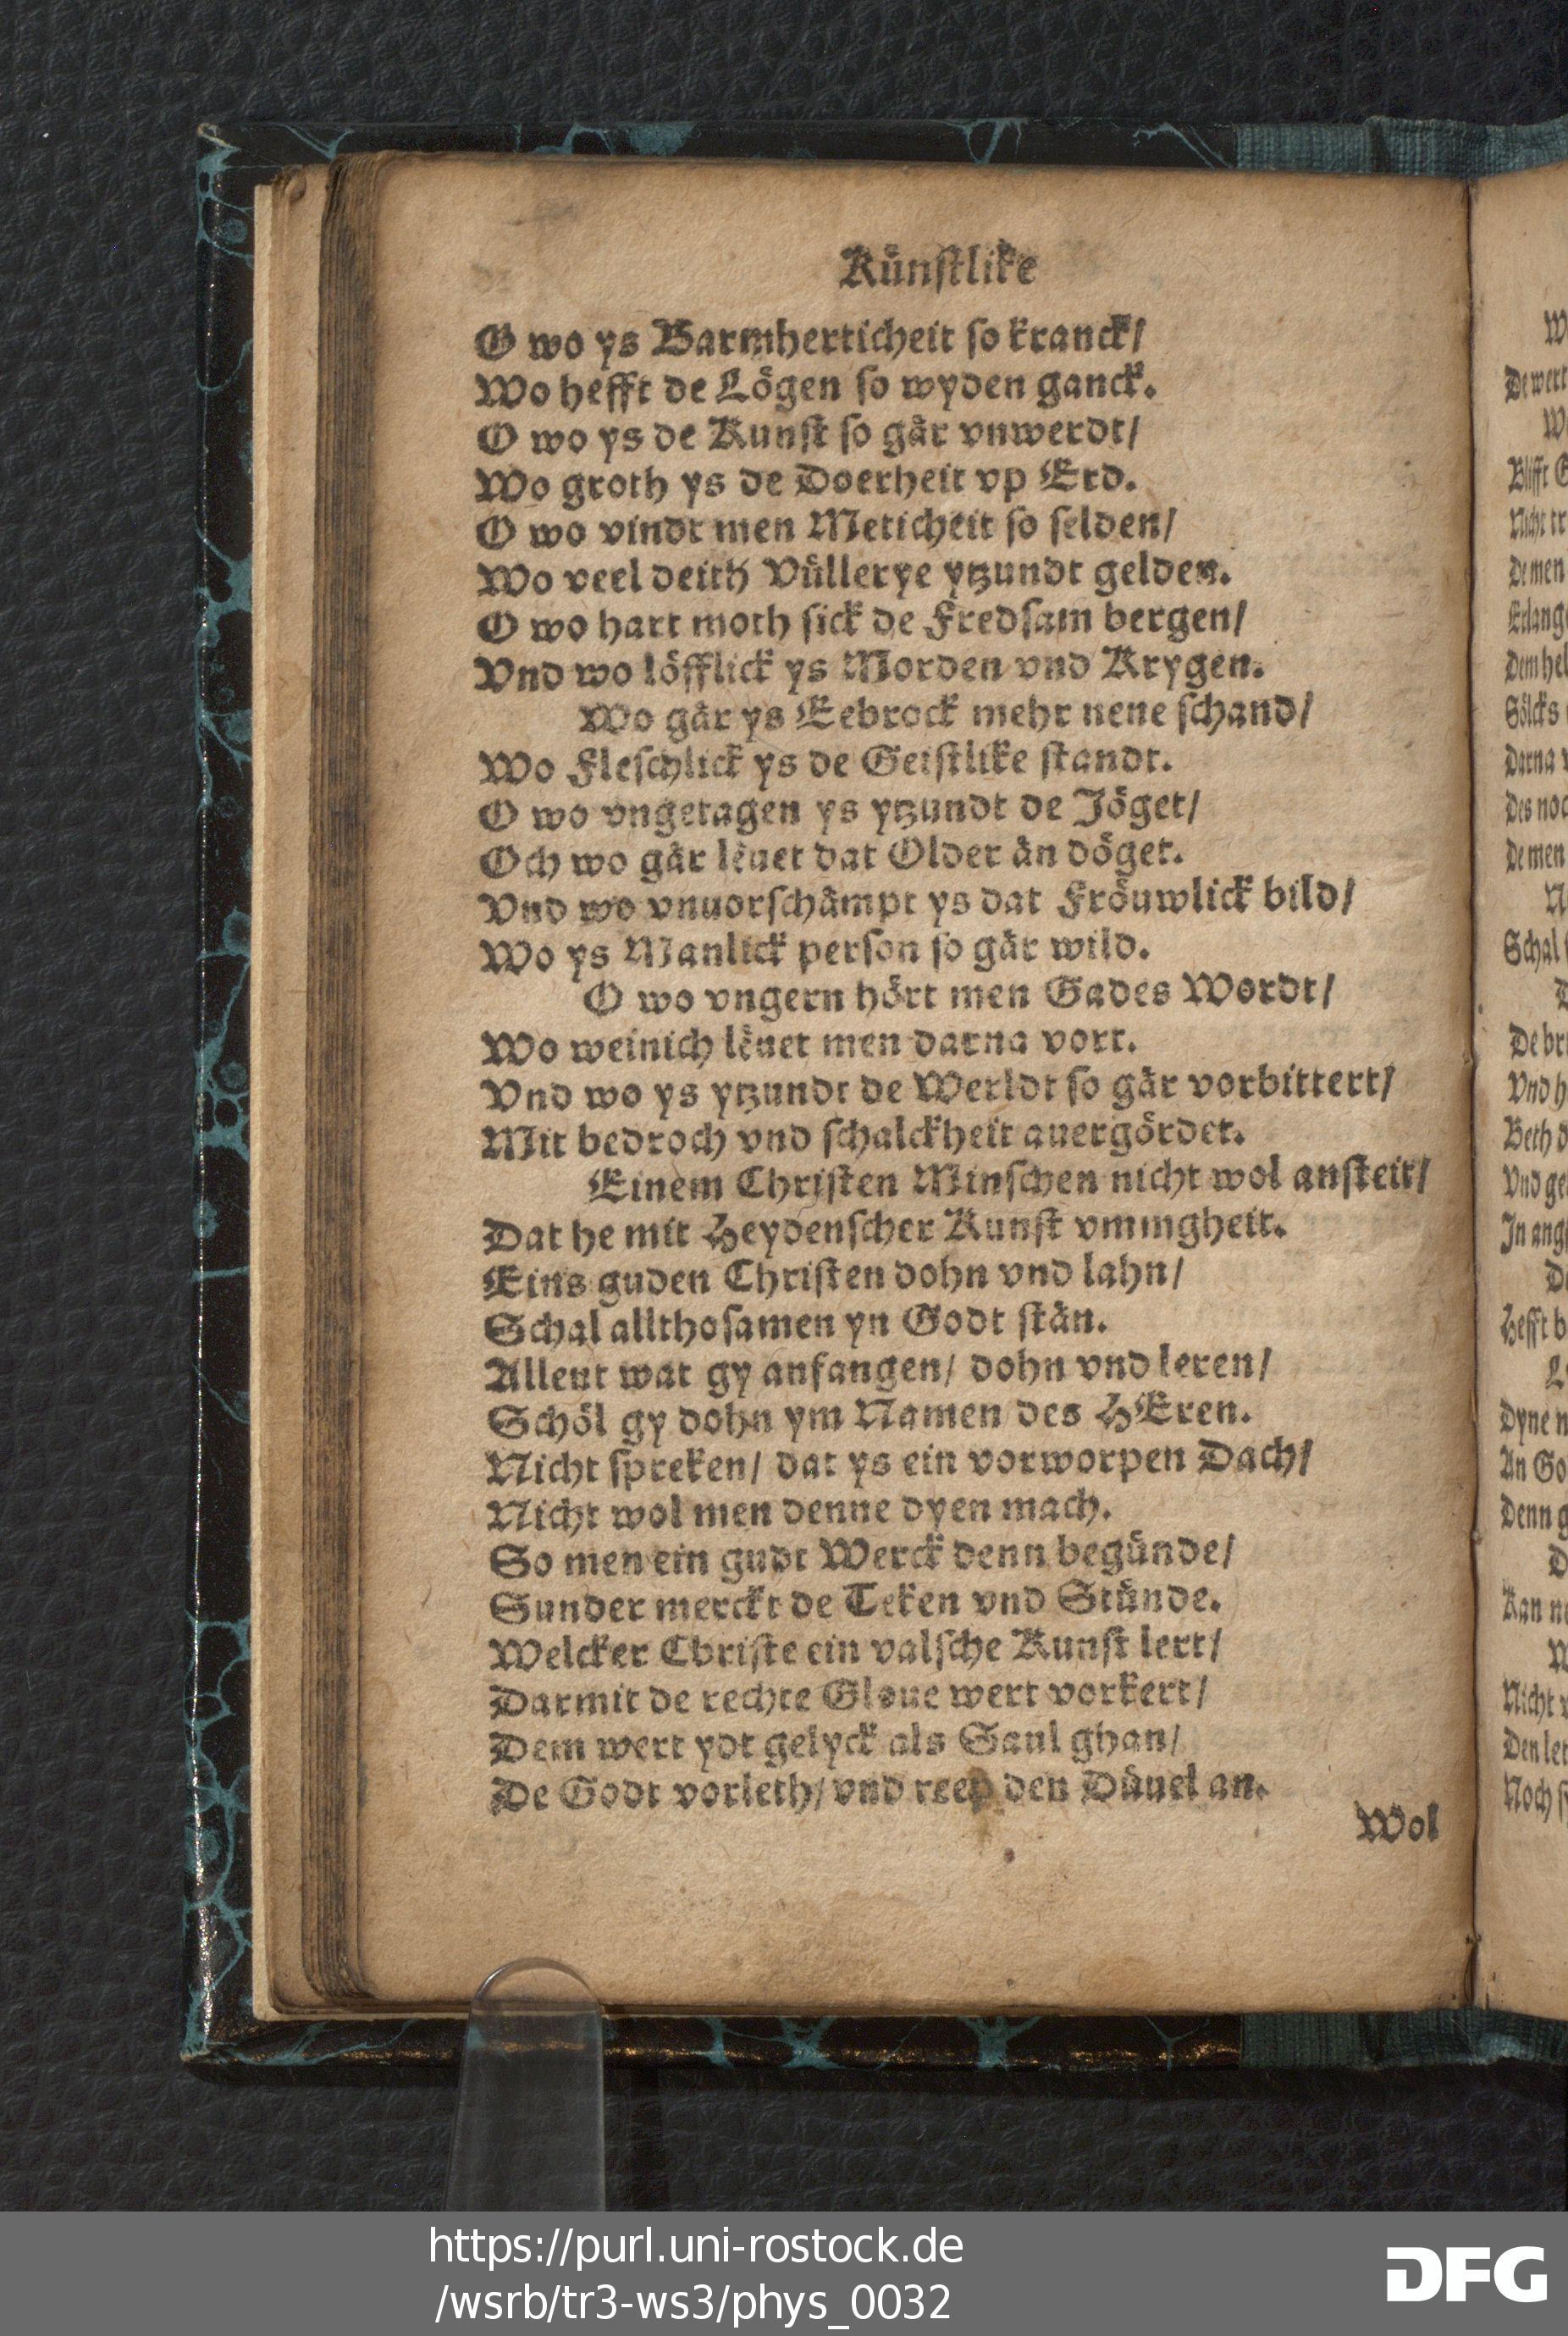 Künstlike
O wo ys Barmherticheit so kranck/
Wo hefft de Lögen so wyden ganck.
O wo ys de Kunst so gär vnwerdt/
Wo groth ys de Doerheit vp Erd.
O wo vindt men Meticheit so selden/
Wo veel deith Vüllerye ytzundt gelden.
O wo hart moth sick de Fredsam bergen/
Vnd wo löfflick ys Morden vnd Krygen.
Wo gär ys Eebrock mehr nene schand/
Wo Fleschlick ys de Geistlike standt.
O wo vngetagen ys ytzundt de Jöget/
Och wo gär lèuet dat Older än döget.
Vnd wo vnuorschämpt ys dat Fröuwlick bild/
Wo ys Manlick person so gär wild.
O wo vngern hört men Gades Wordt/
Wo weinich lèuet men darna vort.
Vnd wo ys ytzundt de Werldt so gär vorbittert/
Mit bedroch vnd schalckheit auergördet.
Einem Christen Minschen nicht wol ansteit/
Dat he mit Heydenscher Kunst vmmgheit.
Eins guden Christen dohn vnd lahn/
Schal allthosamen yn Godt stän.
Allent wat gy anfangen/ dohn vnd leren/
Schöl gy dohn ym Namen des HEren.
Nicht spreken/ dat ys ein vorworpen Dach/
Nicht wol men denne dyen mach.
So men ein gudt Werck denn begünde/
Sunder merckt de Teken vnd Stünde.
Welcker Christe ein valsche Kunst lert/
Darmit de rechte Gloue wert vorkert/
Dem wert ydt gelyck als Saul ghan/
De Godt vorleth/ vnd reep den Düuel an.
Wol
https://purl.uni-rostock.de
/wsrb/tr3-ws3/phys_0032
DFG